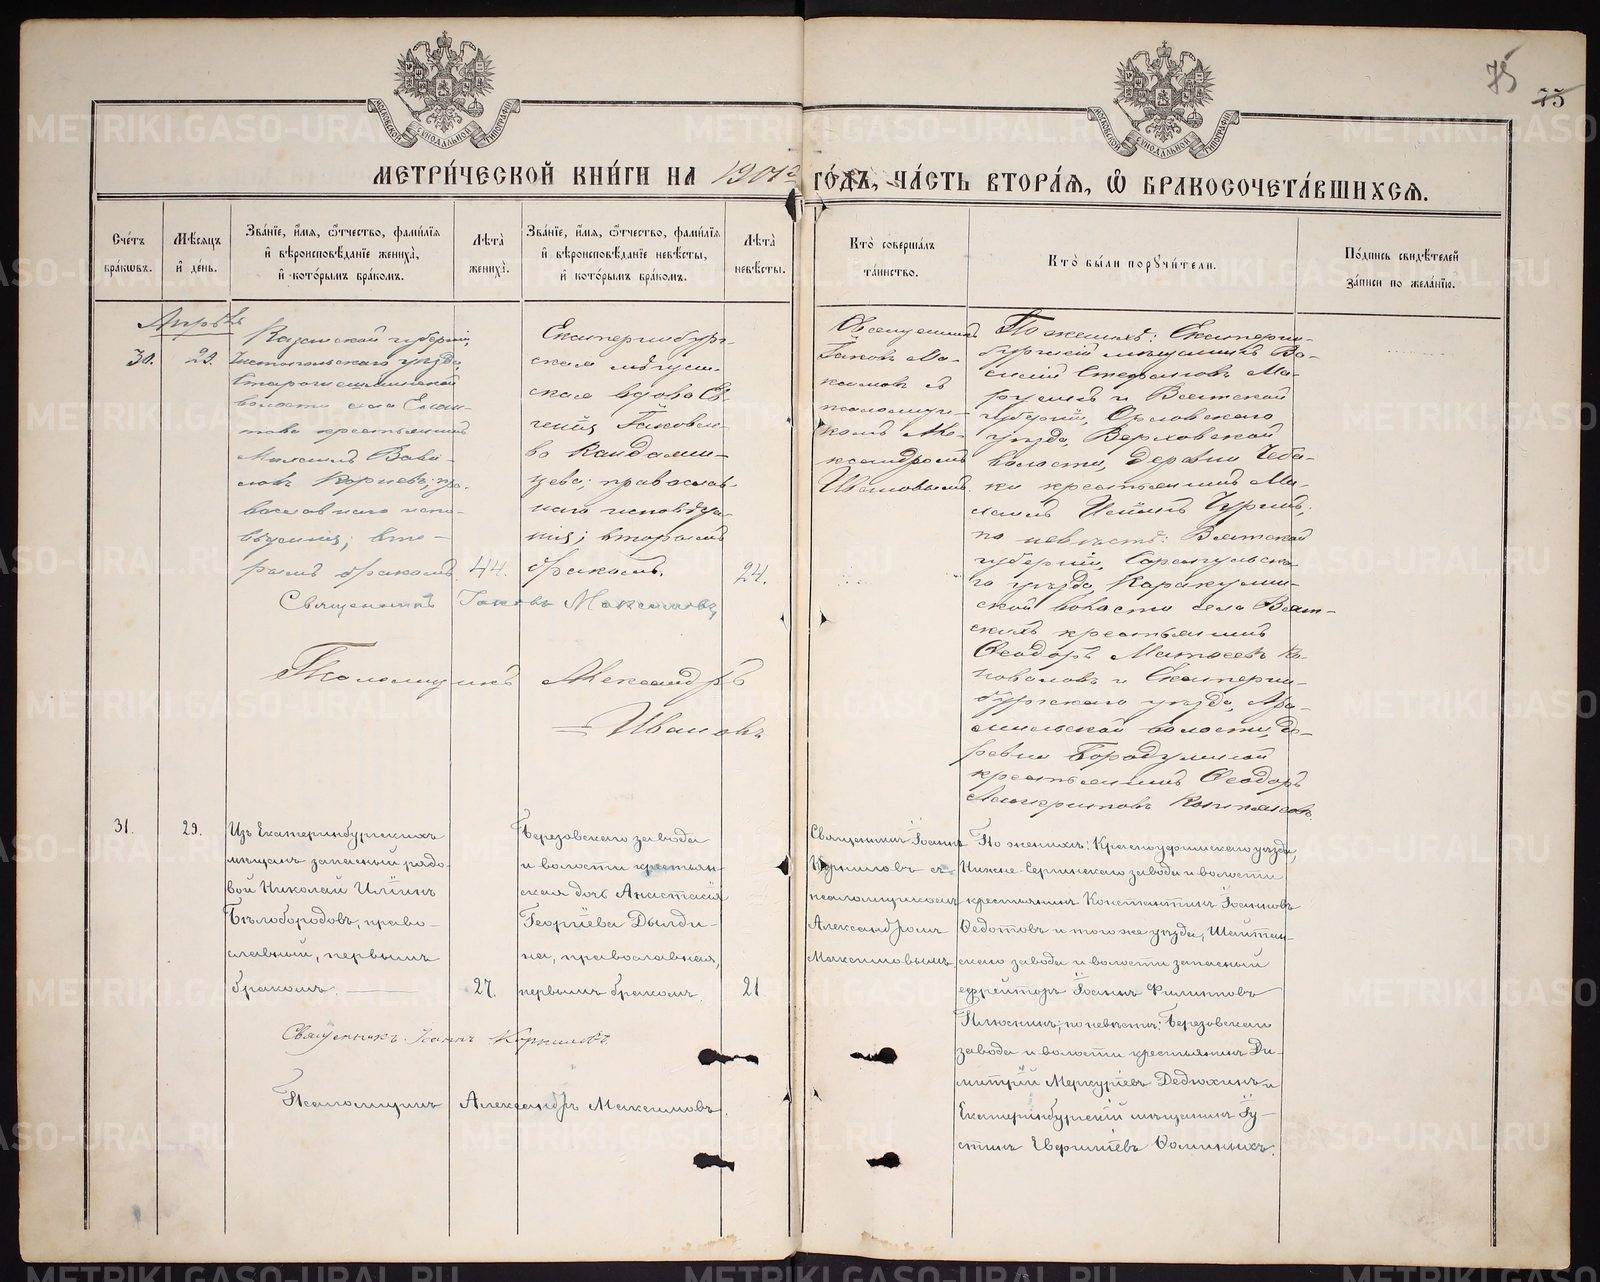 75
МОСКОВСКОЙ СѴНОДАЛЬНОЙ ТИПОГРАФІИ
МОСКОВСКОЙ СѴНОДАЛЬНОЙ ТИПОГРАФІИ
МЕТРИ́ЧЕСКОЙ КНИ́ГИ НА 1901 го́дъ, ча́сть втора́я, ѡ҆ бракосочета́вшихся.
Сче́тъ бра́кѡвъ.
Мѣ́сяцъ и҆ де́нь.
Зва́нїе, и҆́мя, ѻ҆́тчество, фами́лїя и҆ вѣроисповѣ́данїе жениха̀, и҆ кото́рымъ бра́комъ.
Лѣ́та жениха̀.
Зва́нїе, и҆́мя, ѻ҆́тчество, фами́лїя и҆ вѣроисповѣ́данїе невѣ́сты, и҆ кото́рымъ бра́комъ.
Лѣ́та невѣ́сты.
Кто̀ соверша́лъ та́инство.
Кто̀ бы́ли порꙋчи́тели.
По́дпись свидѣ́телей за́писи по жела́нїю.
Апрѣль
30.
29.
Казанской губерніи,
Чистопольскаго уѣзда,
волости села Елан-
това крестьянинъ
Максимъ Вави-
ловъ Корневъ; пра-
вославнаго испо-
вѣданія; вто-
рымъ бракомъ.
44.
Екатеринбург-
ская мѣщан-
ская вдова Ев-
генія Іаковле-
ва Кандалин-
цева; православ-
наго исповѣда-
нія; вторымъ
бракомъ.
24.
Священникъ
Іаковъ Ма-
ксимовъ съ
псаломщи-
комъ Але-
ксандромъ
Ивановымъ.
По женихѣ: Екатерин-
бургскій мѣщанинъ Ва-
силій Стефановъ Ма-
и Вятской
губерніи, Орловскаго
уѣзда, Верховской
волости, деревни Чеба-
ки крестьянинъ Ми-
хаилъ
по невѣстѣ: Вятской
губерніи, Сарапульска-
го уѣзда, Каракулин-
ской волости села Вят-
скихъ крестьянинъ
Ѳеодоръ Матѳеевъ Ко-
новаловъ и Екатерин-
бургскаго уѣзда, Ара-
мильской волости, де-
ревни Бородулиной
крестьянинъ Ѳеодоръ
Священникъ Іаковъ Максимовъ
Псаломщикъ Александръ
Ивановъ
31.
29.
Изъ Екатеринбургскихъ
мѣщанъ запасный рядо-
вой Николай Илііинъ
Бѣлобородовъ, право-
славный, первымъ
бракомъ.
27.
Березовскаго завода
и волости крестьян-
ская дочь Анастасія
Георгіева Дылди-
на, православная,
первымъ бракомъ.
21
Священникъ Іоаннъ
Корниловъ съ
псаломщикомъ
Александромъ
Максимовымъ.
По женихѣ: Красноуфимскаго уѣзда,
Нижне-Сергинскаго завода и волости
крестьянинъ Константинъ Іоанновъ
Ѳедотовъ и того же уѣзда, Шайтан-
скаго завода и волости запасный
ефрейторъ Іоаннъ Филипповъ
Плюснинъ; по невѣстѣ: Березовскаго
завода и волости крестьянинъ Ди-
митрій Меркуріевъ Дедюхинъ и
Екатеринбургскій мѣщанинъ Іу-
стинъ Евфиміевъ Ѳоминыхъ.
Священникъ Іоаннъ Корниловъ
Псаломщикъ Александръ Максимовъ.
METRIKI.GASO-URAL.RU